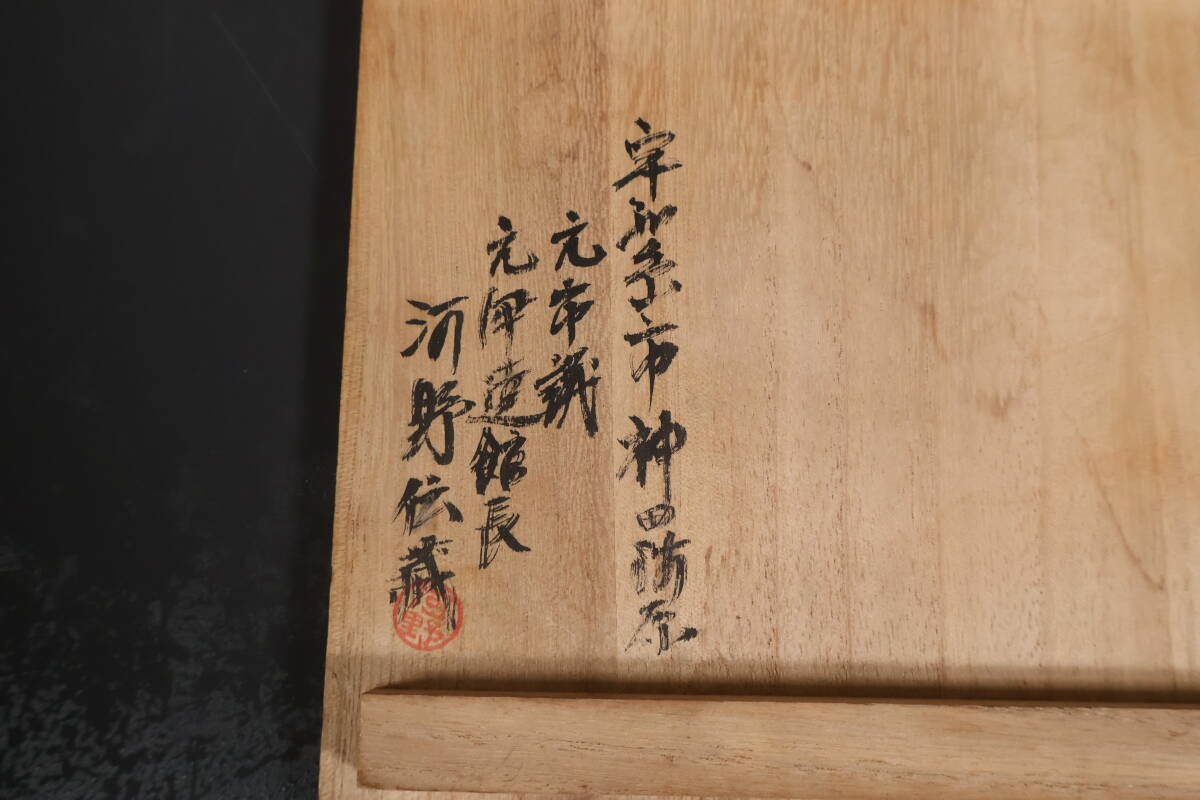 宇梨市神田濟原
元市議
元伊達館長
河野伝蔵
河野